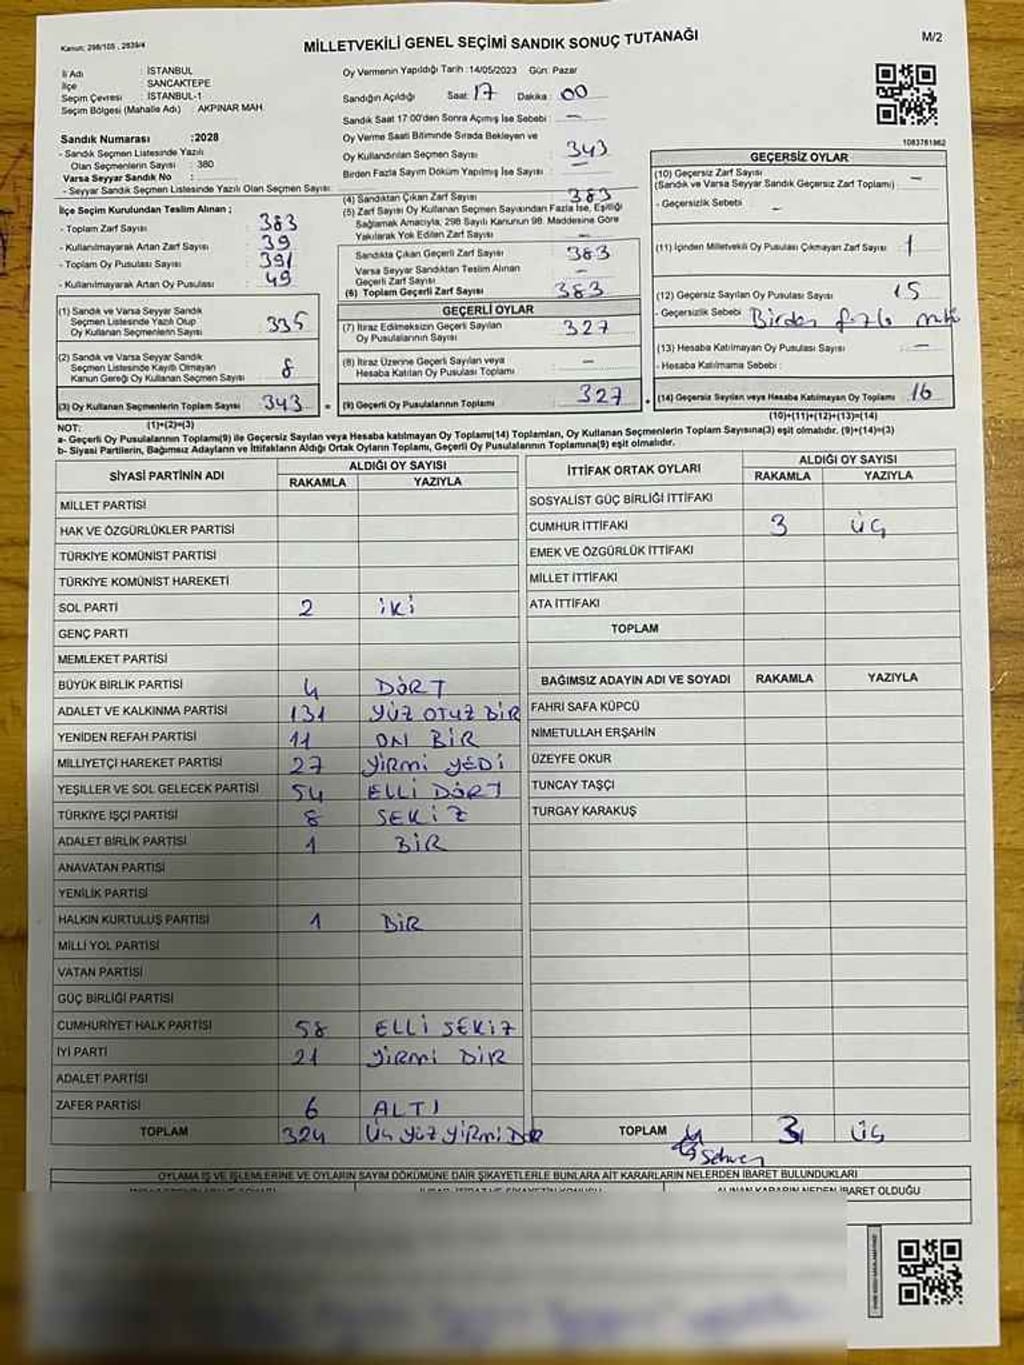 Kanun: 298/105 , 2839/4
MİLLETVEKİLİ GENEL SEÇİMİ SANDIK SONUÇ TUTANAĞI
M/2
İl Adı : İSTANBUL
İlçe : SANCAKTEPE
Seçim Çevresi : İSTANBUL-1
Seçim Bölgesi (Mahalle Adı) : AKPINAR MAH.
Sandık Numarası : 2028
- Sandık Seçmen Listesinde Yazılı
Olan Seçmenlerin Sayısı : 380
Varsa Seyyar Sandık No :
- Seyyar Sandık Seçmen Listesinde Yazılı Olan Seçmen Sayısı:
İlçe Seçim Kurulundan Teslim Alınan ;
- Toplam Zarf Sayısı : 383
- Kullanılmayarak Artan Zarf Sayısı : 39
- Toplam Oy Pusulası Sayısı : 391
- Kullanılmayarak Artan Oy Pusulası : 49
(1) Sandık ve Varsa Seyyar Sandık
Seçmen Listesinde Yazılı Olup
Oy Kullanan Seçmenlerin Sayısı 335
(2) Sandık ve Varsa Seyyar Sandık
Seçmen Listesinde Kayıtlı Olmayan
Kanun Gereği Oy Kullanan Seçmen Sayısı 8
(3) Oy Kullanan Seçmenlerin Toplam Sayısı 343
(1)+(2)=(3)
Oy Vermenin Yapıldığı Tarih :14/05/2023 Gün: Pazar
Sandığın Açıldığı Saat: 17 Dakika : 00
Sandık Saat 17:00'den Sonra Açımış İse Sebebi : -
Oy Verme Saati Bitiminde Sırada Bekleyen ve
Oy Kullandırılan Seçmen Sayısı : 343
Birden Fazla Sayım Döküm Yapılmış İse Sayısı : -
(4) Sandıktan Çıkan Zarf Sayısı 383
(5) Zarf Sayısı Oy Kullanan Seçmen Sayısından Fazla İse, Eşitliği
Sağlamak Amacıyla, 298 Sayılı Kanunun 98. Maddesine Göre
Yakılarak Yok Edilen Zarf Sayısı -
Sandıkta Çıkan Geçerli Zarf Sayısı 383
Varsa Seyyar Sandıktan Teslim Alınan
Geçerli Zarf Sayısı -
(6) Toplam Geçerli Zarf Sayısı 383
GEÇERLİ OYLAR
(7) İtiraz Edilmeksizin Geçerli Sayılan
Oy Pusulalarının Sayısı 327
(8) İtiraz Üzerine Geçerli Sayılan veya
Hesaba Katılan Oy Pusulası Toplamı -
(9) Geçerli Oy Pusulalarının Toplamı 327
1083781862
GEÇERSİZ OYLAR
(10) Geçersiz Zarf Sayısı -
(Sandık ve Varsa Seyyar Sandık Geçersiz Zarf Toplamı)
- Geçersizlik Sebebi : -
(11) İçinden Milletvekili Oy Pusulası Çıkmayan Zarf Sayısı 1
(12) Geçersiz Sayılan Oy Pusulası Sayısı 15
- Geçersizlik Sebebi : Birden fazla
(13) Hesaba Katılmayan Oy Pusulası Sayısı -
- Hesaba Katılmama Sebebi :
(14) Geçersiz Sayılan veya Hesaba Katılmayan Oy Toplamı 16
(10)+(11)+(12)+(13)=(14)
NOT:
a- Geçerli Oy Pusulalarının Toplamı(9) ile Geçersiz Sayılan veya Hesaba katılmayan Oy Toplamı(14) Toplamları, Oy Kullanan Seçmenlerin Toplam Sayısına(3) eşit olmalıdır. (9)+(14)=(3)
b- Siyasi Partilerin, Bağımsız Adayların ve İttifakların Aldığı Ortak Oyların Toplamı, Geçerli Oy Pusulalarının Toplamına(9) eşit olmalıdır.
SİYASİ PARTİNİN ADI ALDIĞI OY SAYISI
RAKAMLA YAZIYLA
MİLLET PARTİSİ
HAK VE ÖZGÜRLÜKLER PARTİSİ
TÜRKİYE KOMÜNİST PARTİSİ
TÜRKİYE KOMÜNİST HAREKETİ
SOL PARTİ 2 İKİ
GENÇ PARTİ
MEMLEKET PARTİSİ
BÜYÜK BİRLİK PARTİSİ 4 DÖRT
ADALET VE KALKINMA PARTİSİ 131 YÜZ OTUZ BİR
YENİDEN REFAH PARTİSİ 11 ON BİR
MİLLİYETÇİ HAREKET PARTİSİ 27 YİRMİ YEDİ
YEŞİLLER VE SOL GELECEK PARTİSİ 54 ELLİ DÖRT
TÜRKİYE İŞÇİ PARTİSİ 8 SEKİZ
ADALET BİRLİK PARTİSİ 1 BİR
ANAVATAN PARTİSİ
YENİLİK PARTİSİ
HALKIN KURTULUŞ PARTİSİ 1 BİR
MİLLİ YOL PARTİSİ
VATAN PARTİSİ
GÜÇ BİRLİĞİ PARTİSİ
CUMHURİYET HALK PARTİSİ 58 ELLİ SEKİZ
İYİ PARTİ 21 YİRMİ BİR
ADALET PARTİSİ
ZAFER PARTİSİ 6 ALTI
TOPLAM 324 ÜÇ YÜZ YİRMİ
İTTİFAK ORTAK OYLARI ALDIĞI OY SAYISI
RAKAMLA YAZIYLA
SOSYALİST GÜÇ BİRLİĞİ İTTİFAKI
CUMHUR İTTİFAKI 3 ÜÇ
EMEK VE ÖZGÜRLÜK İTTİFAKI
MİLLET İTTİFAKI
ATA İTTİFAKI
TOPLAM
BAĞIMSIZ ADAYIN ADI VE SOYADI RAKAMLA YAZIYLA
FAHRİ SAFA KÜPCÜ
NİMETULLAH ERŞAHİN
ÜZEYFE OKUR
TUNCAY TAŞÇI
TURGAY KARAKUŞ
TOPLAM 3 ÜÇ
OYLAMA İŞ VE İŞLEMLERİNE VE OYLARIN SAYIM DÖKÜMÜNE DAİR ŞİKAYETLERLE BUNLARA AİT KARARLARIN NELERDEN İBARET BULUNDUKLARI
ALINAN KARARIN NEDEN İBARET OLDUĞU